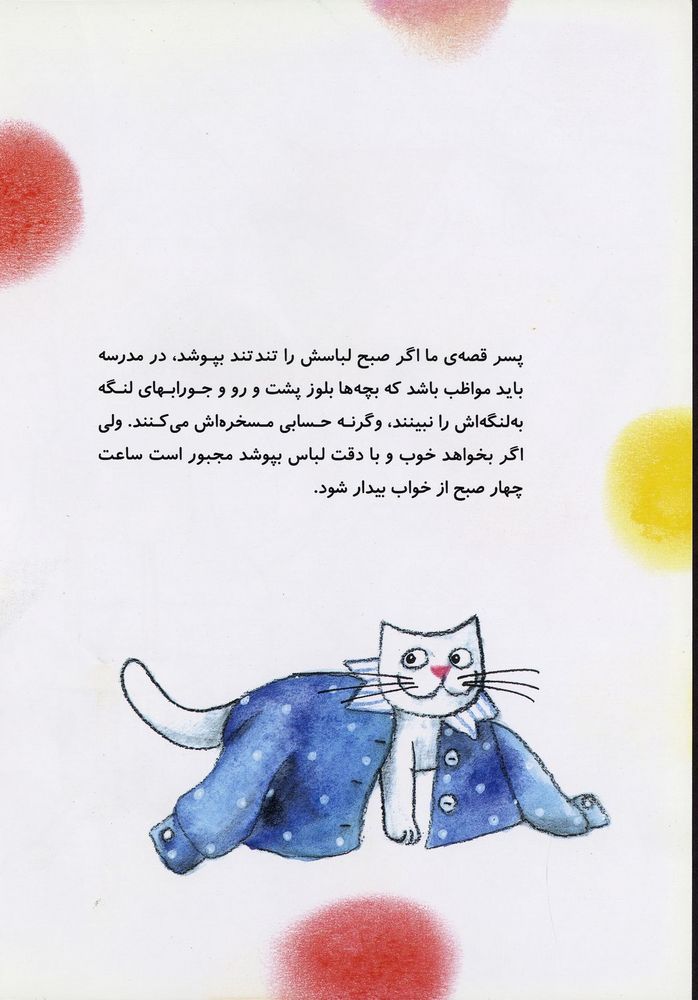 پسر قصه‌ی ما اگر صبح لباسش را تندتند بپوشد، در مدرسه
باید مواظب باشد که بچه‌ها بلوز پشت و رو و جورابهای لنگه
به‌لنگه‌اش را نبینند، وگرنه حسابی مسخره‌اش می‌کنند. ولی
اگر بخواهد خوب و با دقت لباس بپوشد مجبور است ساعت
چهار صبح از خواب بیدار شود.